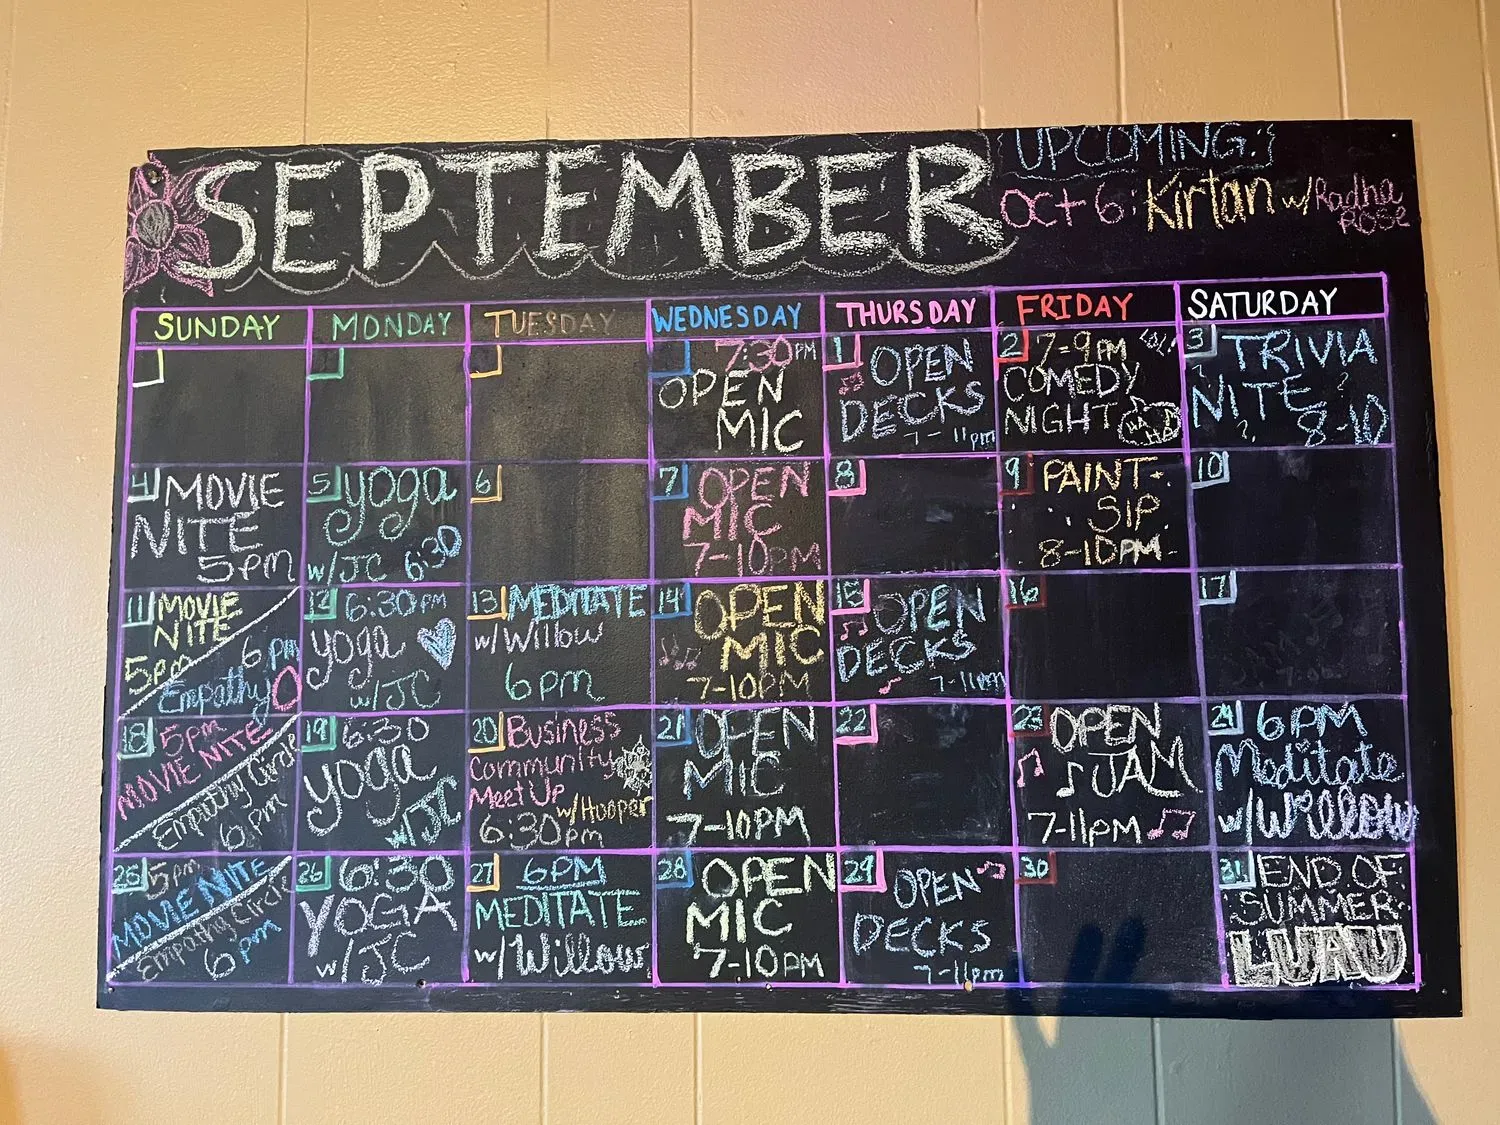 SEPTEMBER
UPCOMING:
OCT 6: Kirtan w/ Radha
Rose
SUNDAY MONDAY TUESDAY WEDNESDAY THURSDAY FRIDAY SATURDAY
7:30PM
OPEN
MIC
1 OPEN
DECKS
7-11pm
2 7-9PM
COMEDY
NIGHT
3 TRIVIA
NITE ?
? 8-10
4 MOVIE
NITE
5pm
5 yoga
w/JC 6:30
6
7 OPEN
MIC
7-10PM
8
9 PAINT-
SIP
8-10PM
10
11 MOVIE
NITE
5pm
6pm
Empathy O
12 6:30PM
yoga
w/JC
13 MEDITATE
w/Willow
6pm
14 OPEN
MIC
7-10PM
15 OPEN
DECKS
7-11pm
16
17
18 5pm
MOVIE NITE
Empathy Circle
6pm
19 6:30
yoga
w/JC
20 Business
Community
MeetUp
w/Hooper
6:30pm
21 OPEN
MIC
7-10PM
22
23 OPEN
JAM
7-11PM
24 6PM
Meditate
w/Willow
25 5pm
MOVIE NITE
Empathy Circle
6pm
26 6:30
YOGA
w/JC
27 6PM
MEDITATE
w/Willow
28 OPEN
MIC
7-10PM
29 OPEN
DECKS
7-11pm
30
31 END OF
SUMMER
LUAU